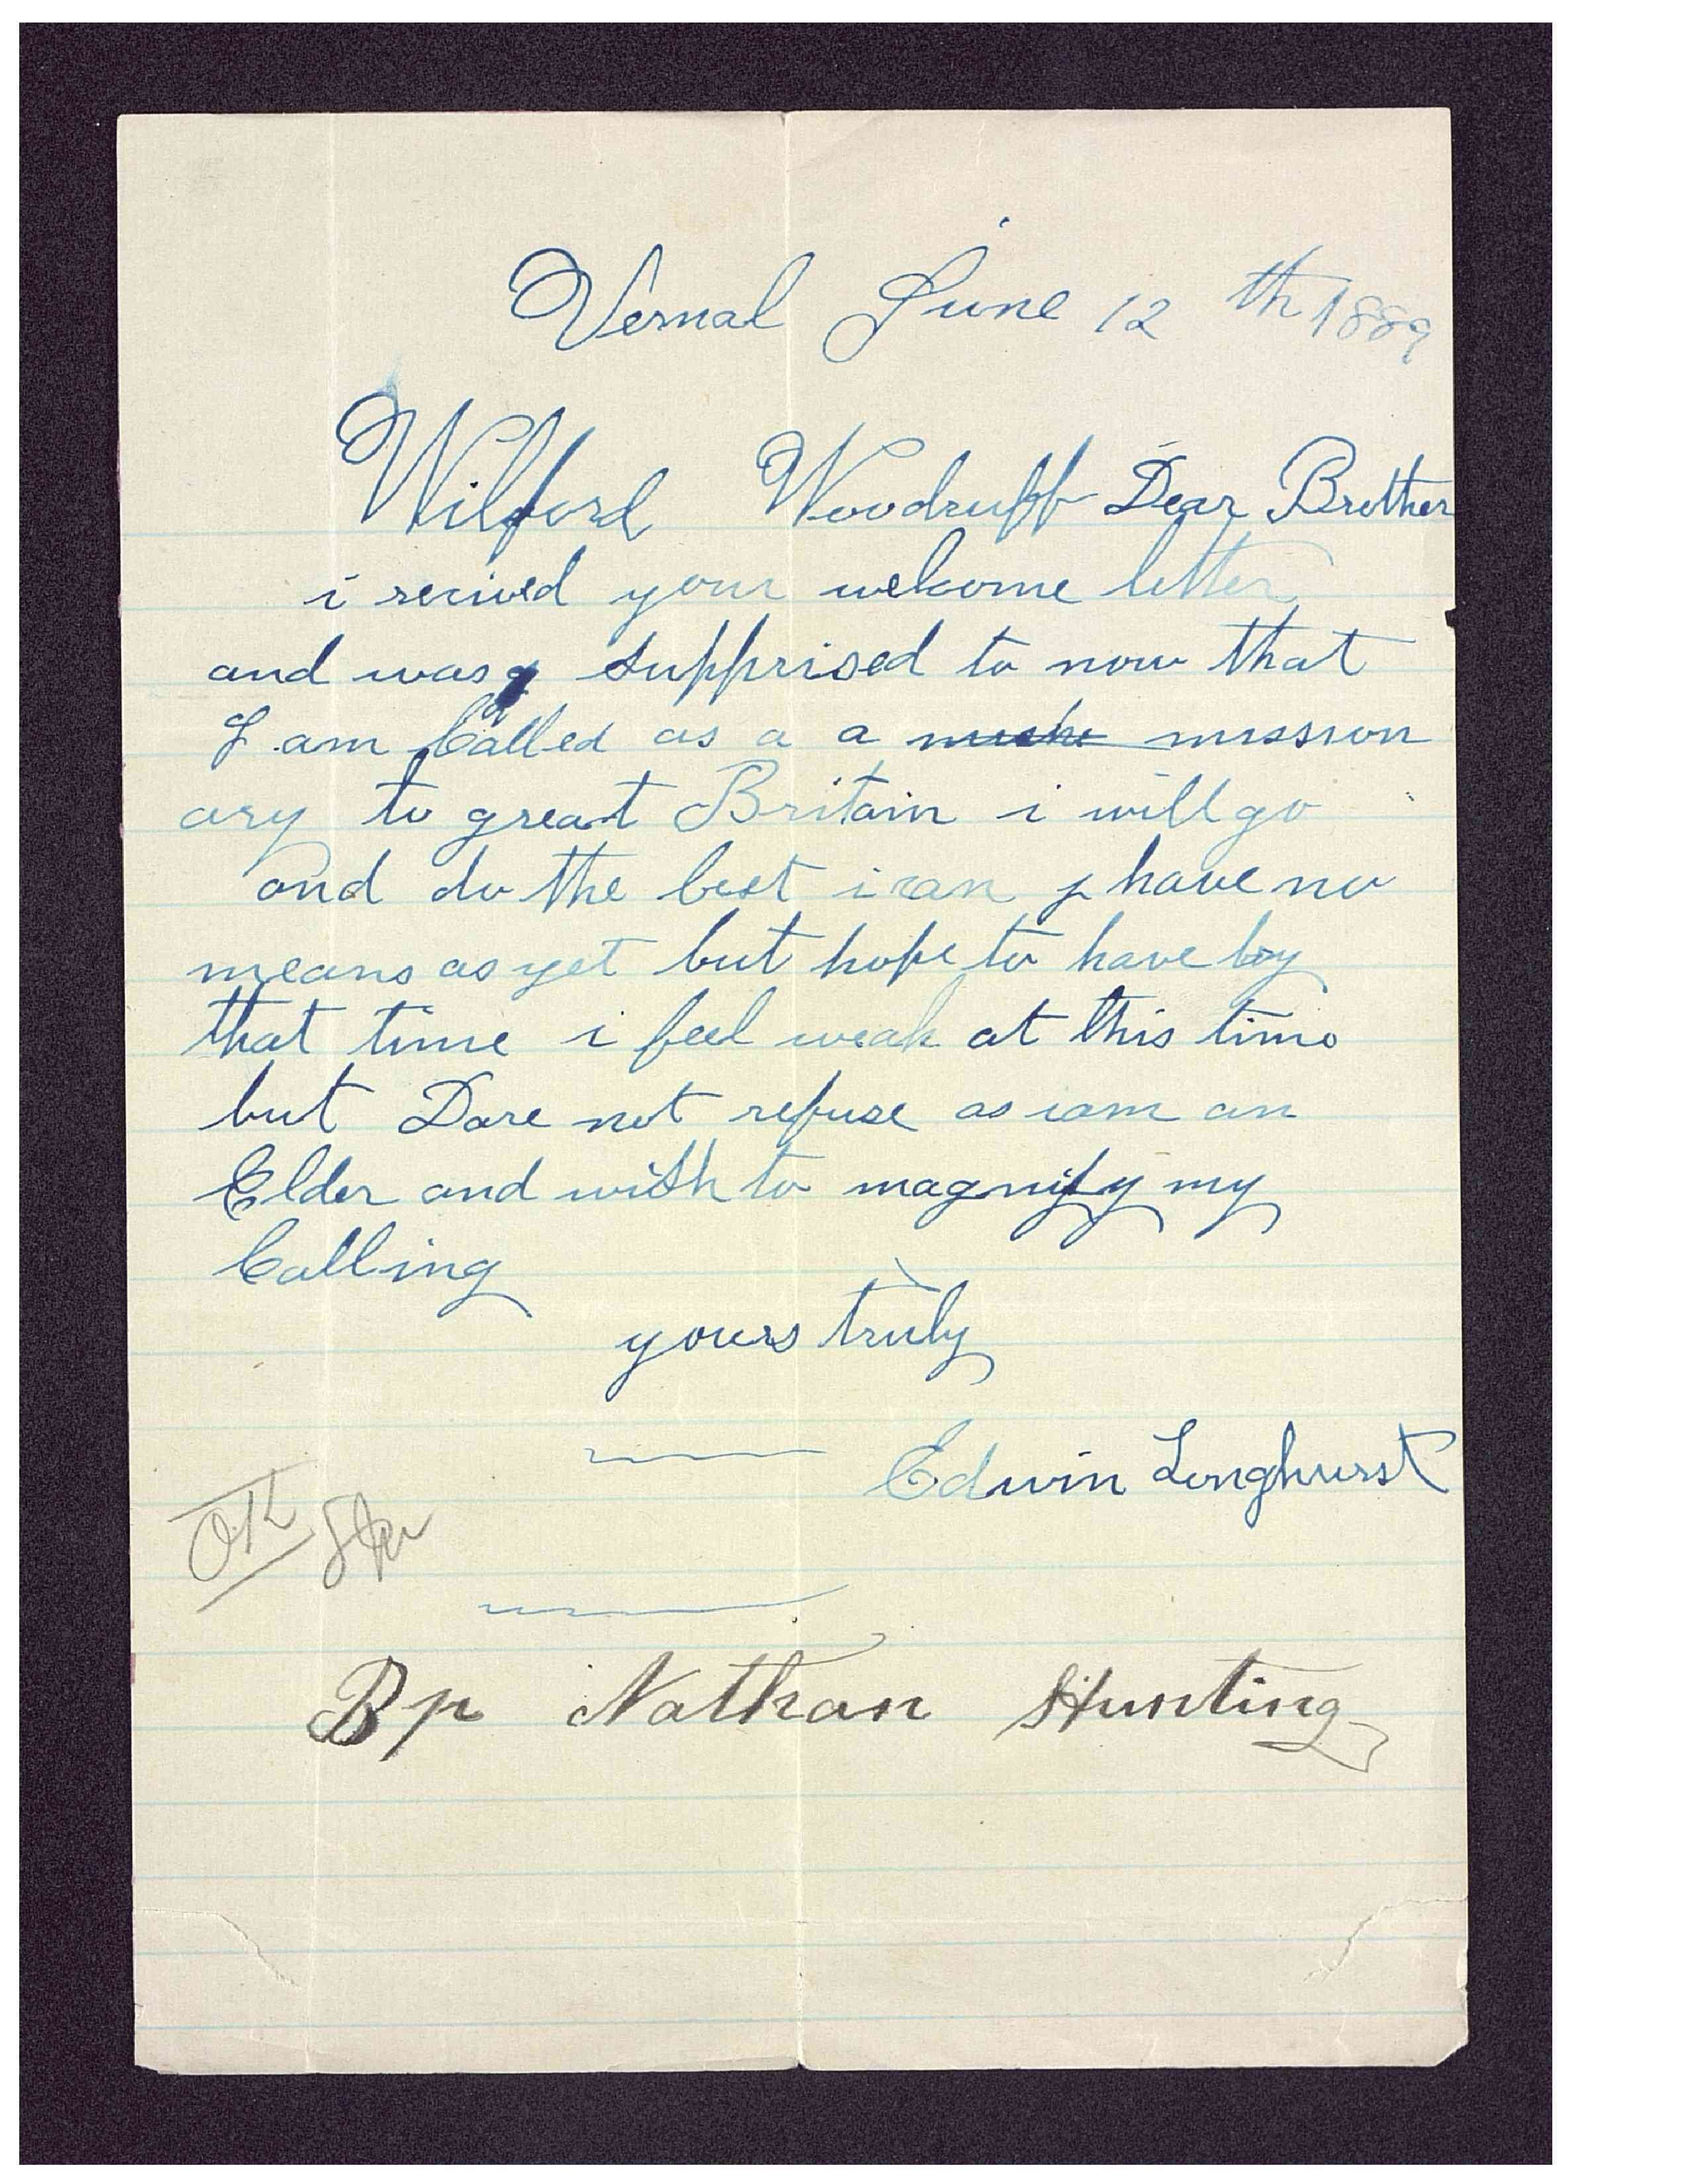 Vernal June 12 th 1889
Wilford Woodruff Dear Brother
i recived your welcome letter
and was supprised to now that
I am Called as a a mission
ary to great Britain i will go
and do the best i can i have no
means as yet but hope to have by
that time i feel weak at this time
but Dare not refuse as i am an
Elder and wish to magnify my
Calling
yours truly
Edwin Longhurst
OK
Bp Nathan Hunting